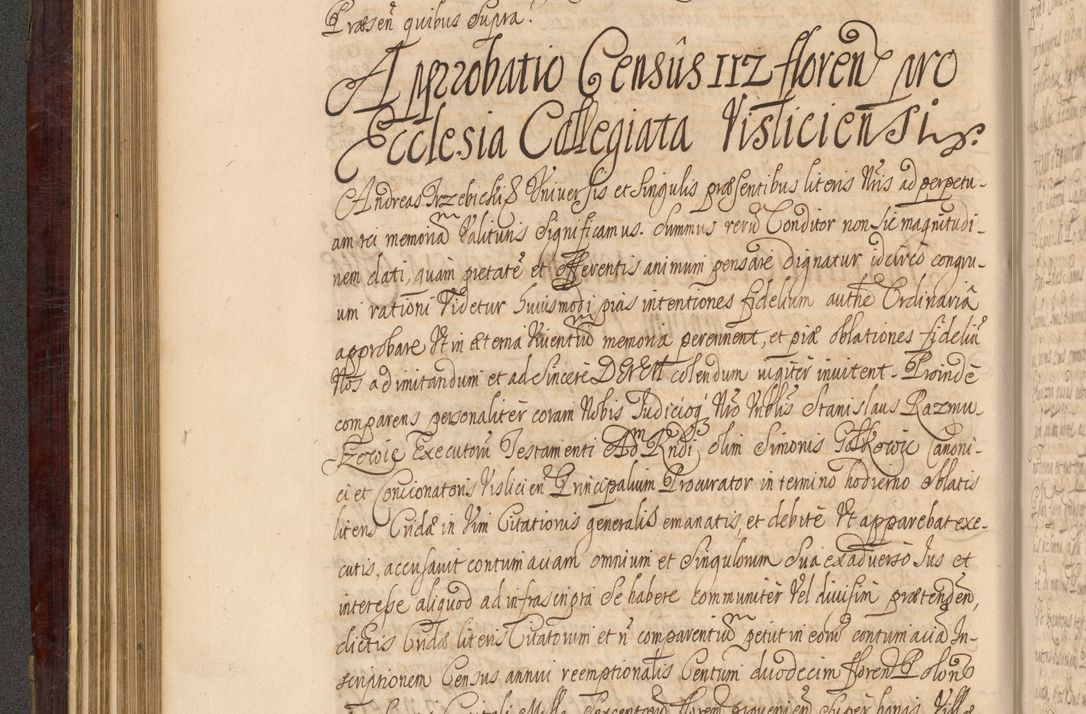 Præsen̄ quibus Supra.
Approbatio Censûs 112 floren̄ pro
Ecclesia Collegiata Visliciensi.
Andreas Trzebicki &c Universis et Singulis præsentibus literis Nr̄is ad perpetu-
am rei memoriam Valituris Significamus. Summus rerū Conditor non sic magnitudi-
nem dati, quam pietatē et offerentis animum pensare dignatur idcircò congru-
um rationi Videtur huiusmodi pias intentiones fidelium authē Ordinariā
approbare Vt in æterna Viventium memoria perennent, et piæ oblationes fideliū
Nos ad imitandum et ad Sincere DEVM colendum iugiter invitent. Proindè
comparens personalitèr coram Nobis Iudicioq́ Nr̄o Nobīlis Stanislaus Razmu-
szowic Executorū Testamenti Adm Rndi olim Simonis Canoni-
ci et Concionatoris Vislicien̄ Principalium Procurator in termino hodierno oblatis
literis Cridæ in Vim Citationis generalis emanatis, et debitè Vt apparebat exe-
cutis, accusavit contumaciam omnium et Singulorum Sua ex adverso Ius et
interesse aliquod ad infrascripta Se habere communitèr Vel divisim prætenden̄,
dictis Cridæ literis Citatorum et n̄ comparentium petut in eorū contumaciā In-
scriptionem Census annui reemptionalis Centum duodecim floren̄ Polon̄